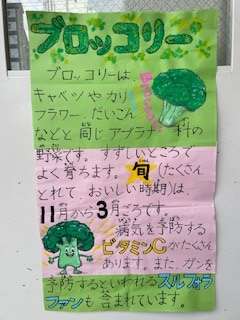 ブロッコリー
ブロッコリーは
キャベツやカリ
フラワー、だいこん
などと同じアブラナ科の
野菜です。すずしいところで
よく育ちます。旬(たくさん
とれておいしい時期)は
11月から3月ごろです。
病気を予防する
ビタミンCがたくさん
あります。また ガンを
予防するといわれるスルフォラ
ファンも含まれています。